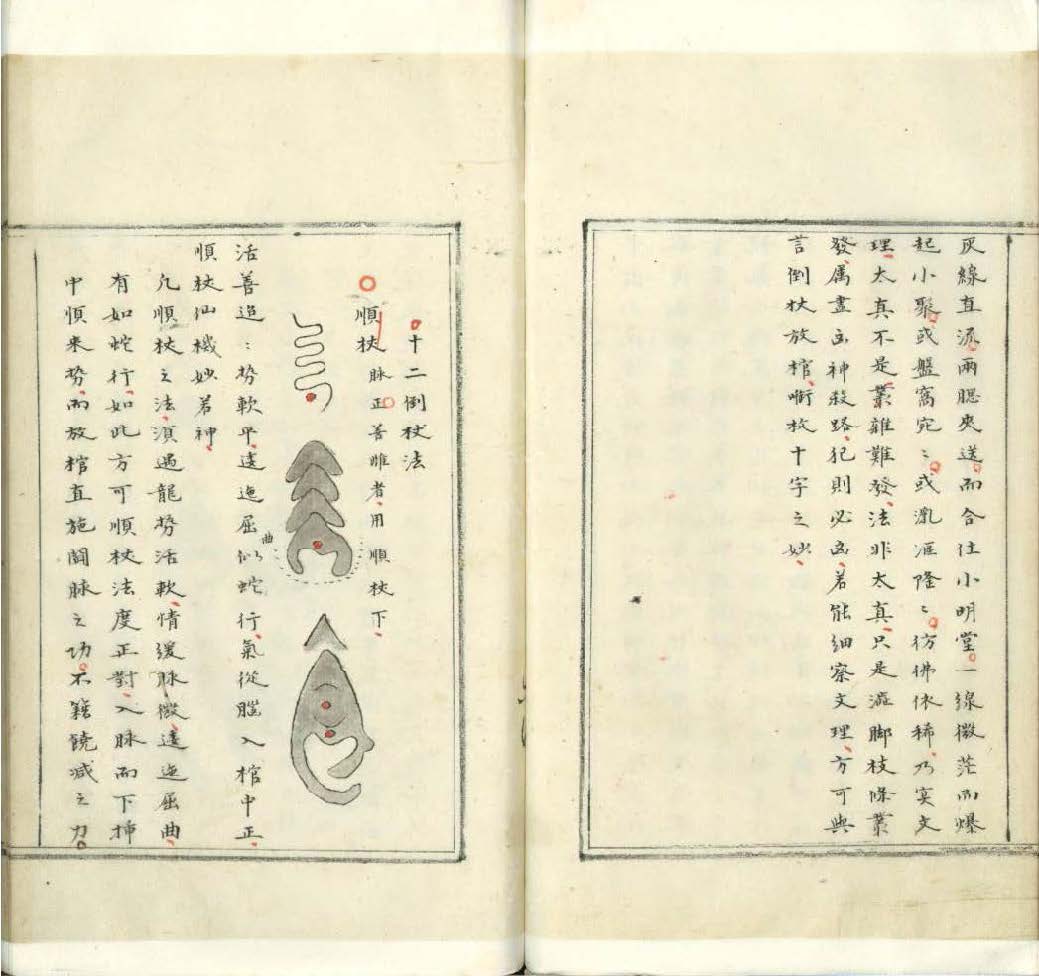 灰線直流兩腮夾送而合仕小明堂一線微茫而爆
起小聚或盤窩宛〻或濔涯隆〻彷佛依稀乃寔文
理太真不是叢雜難發法非太真只是涯脚枝條叢
發属畫凶神殺路犯則必凶若能細察文理方可與
言倒杖放棺啣枚十字之妙
十二倒杖法
順杖 脉正善唯者用順杖下
曲
活善迢〻勢軟平逶迤屈似蛇行氣從腦入棺中正
順杖仙機妙若神
凢順杖之法須遇龍勢活軟情緩脉微逶迤屈曲
有如蛇行如此方可順杖法度正對入脉而下揷
中順来勢而放棺直施鬪脉之功不籍饒减之力